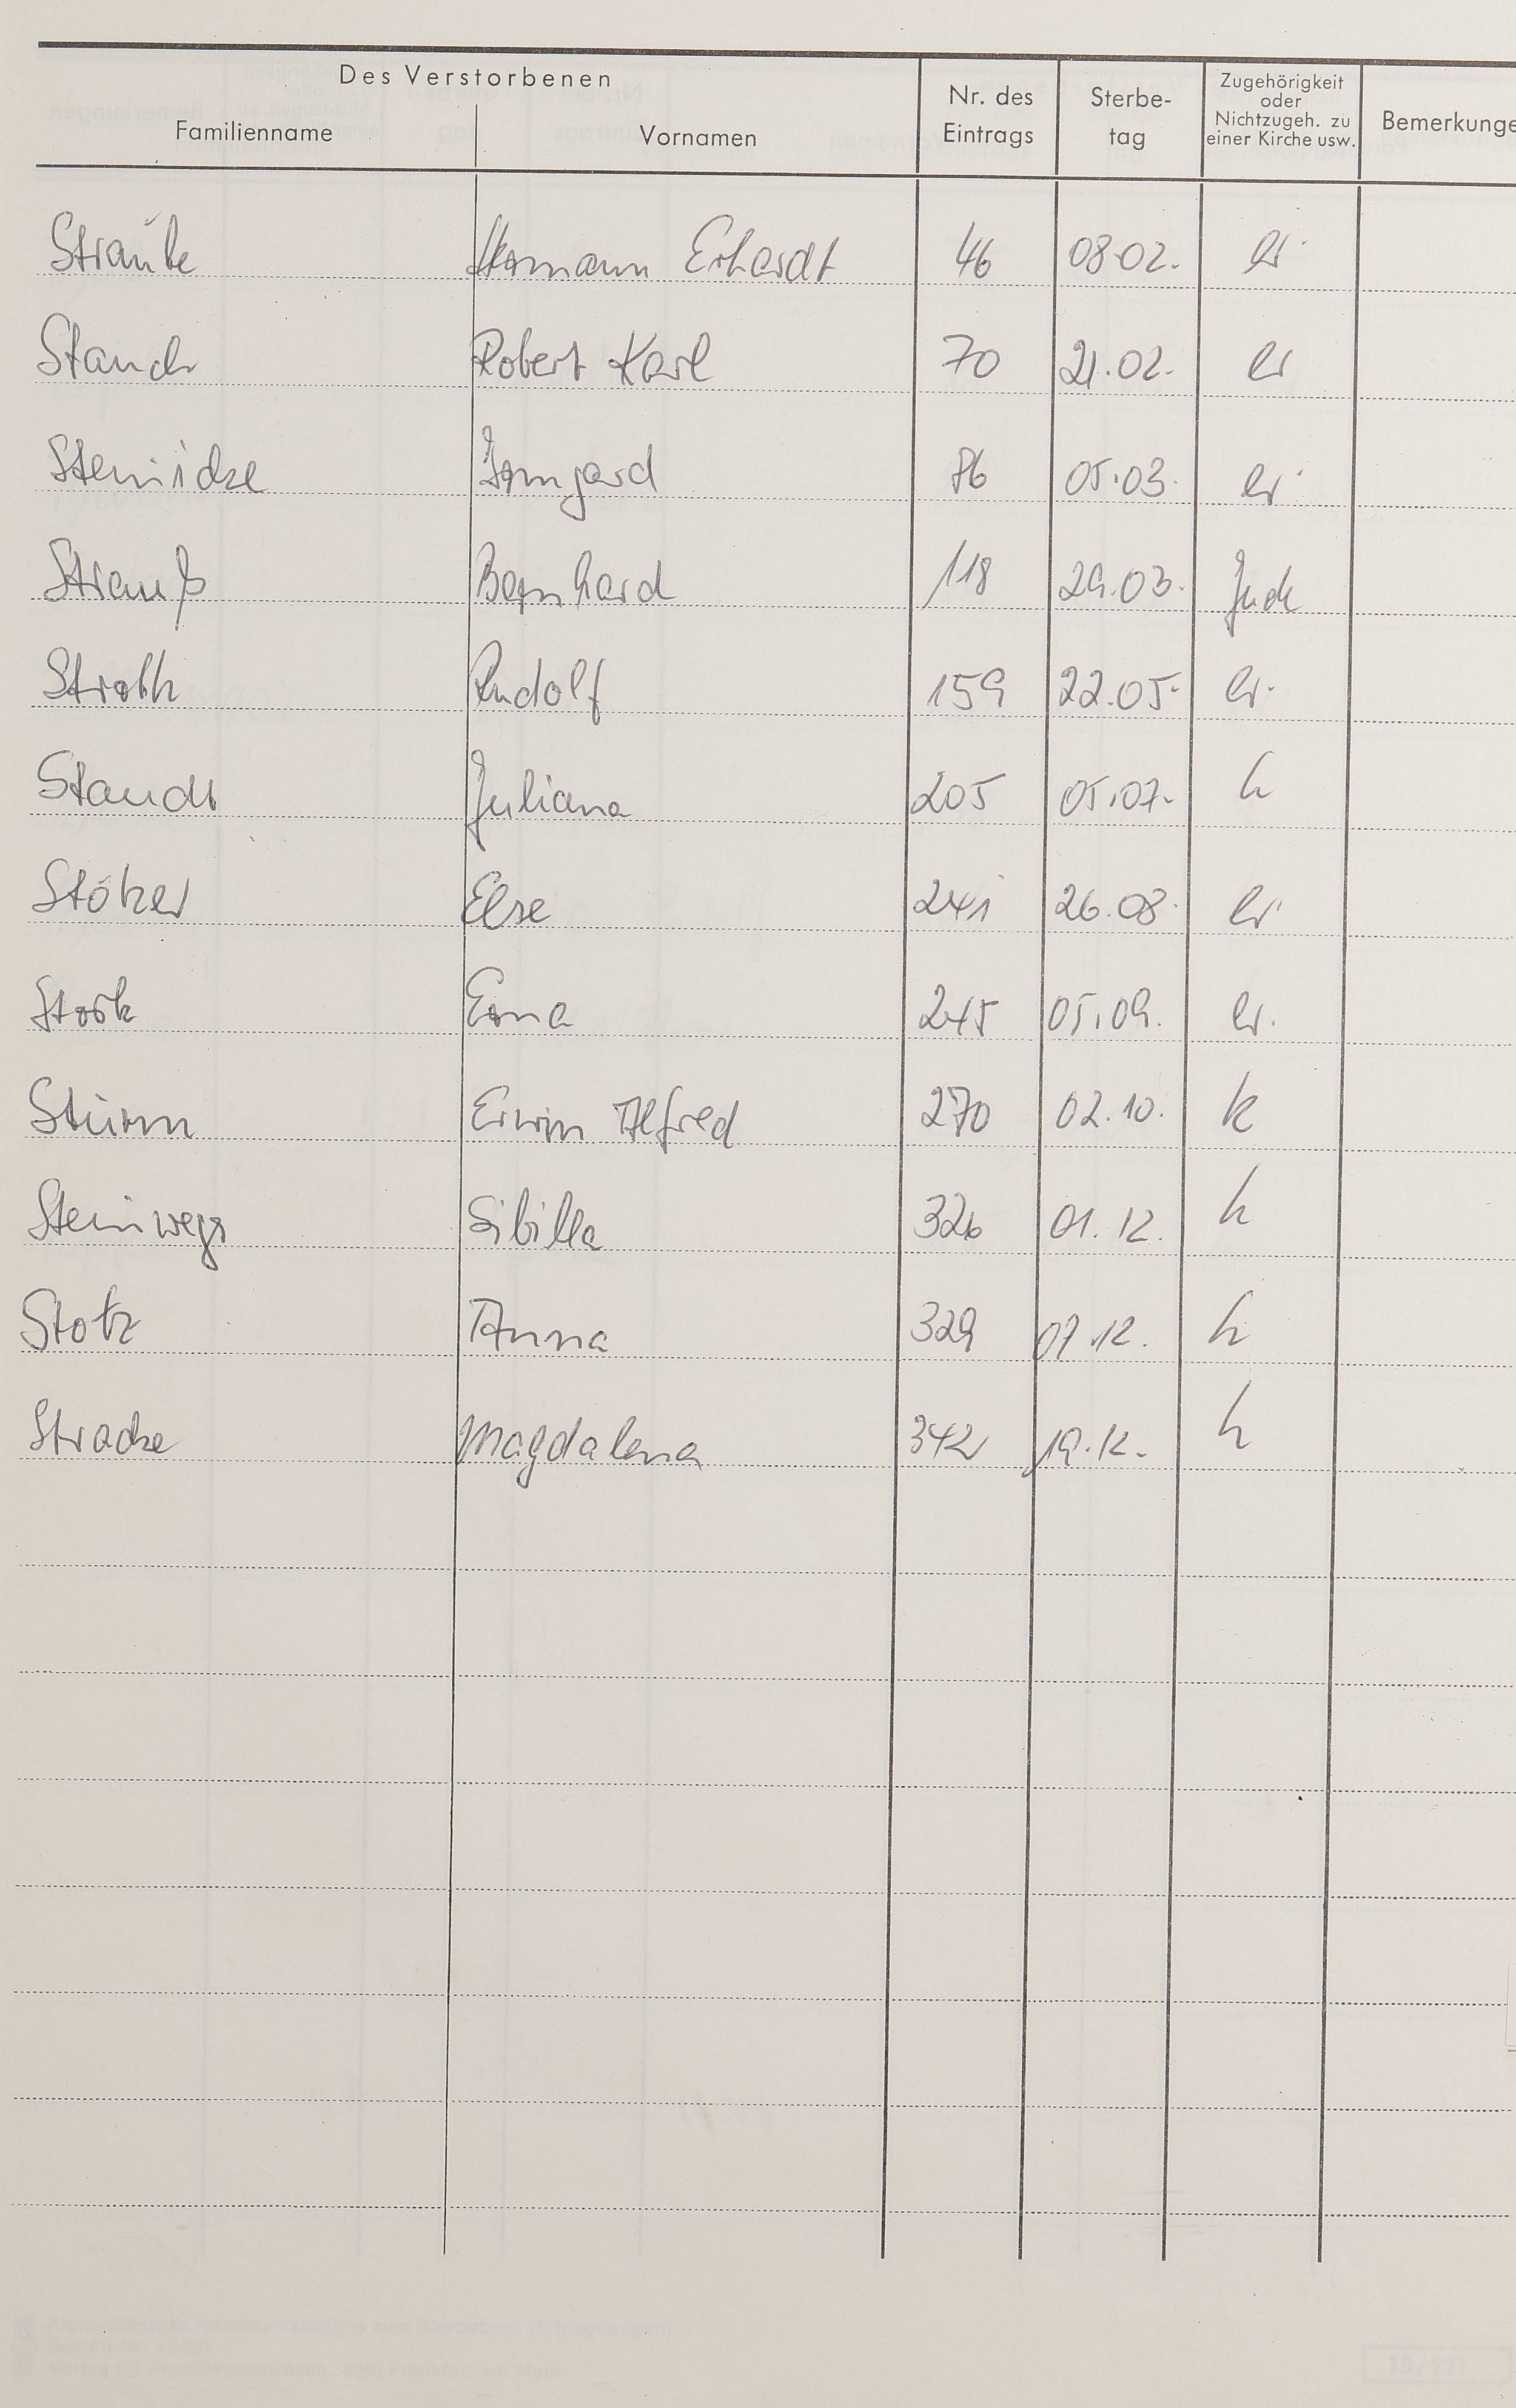 Des Verstorbenen
Familienname Vornamen Nr. des Eintrags Sterbe-tag Zugehörigkeit oder Nichtzugeh. zu einer Kirche usw. Bemerkunge
Straube Hermann Erhardt 46 08.02. ev.
Stauch Robert Karl 70 21.02. ev
Steinicke Irmgard 86 05.03. ev.
Strauß Bernhard 118 29.03. Jude
Stroth Rudolf 159 22.05. ev.
Juliana 205 05.07. k
Stötzer Else 241 26.08. ev.
Stork Erna 245 05.09. ev.
Sturm Erwin Alfred 270 02.10. k
Steinwegs Sibilla 326 01.12. k
Stotz Anna 329 07.12. k
Stracke Magdalena 342 19.12. k